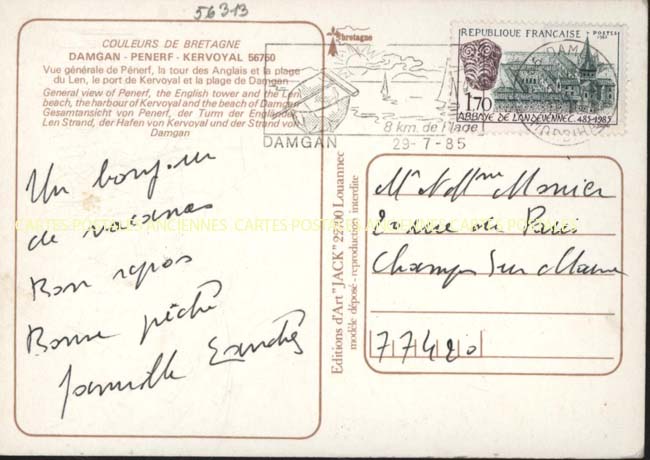 56313
COULEURS DE BRETAGNE
DAMGAN - PENERF - KERVOYAL 56750
Vue générale de Pénerf, la tour des Anglais et la plage
du Len, le port de Kervoyal et la plage de Damgan
General view of Penerf, the English tower and the Len
beach, the harbour of Kervoyal and the beach of Damgan
Gesamtansicht von Penerf, der Turm der Engländer
Len Strand, der Hafen von Kervoyal und der Strand von
Damgan
Un bonjour
de vacances
Bon repos
Bonne pêche
famille
Editions d'Art "JACK" 22600 Louannec
modèle déposé - reproduction interdite
bretagne
DAMGAN
8 km. de Plage
29-7-85
REPUBLIQUE FRANCAISE
POSTES
1,70
ABBAYE DE LANDEVENNEC 485-1985
DAMGAN
MORBIHAN
Mr Mme Monier
2 rue de Paris
Champs Sur Marne
77420
CARTES POSTALES ANCIENNES CARTES POSTALES ANCIENNES CARTES POSTALES ANCIENNES